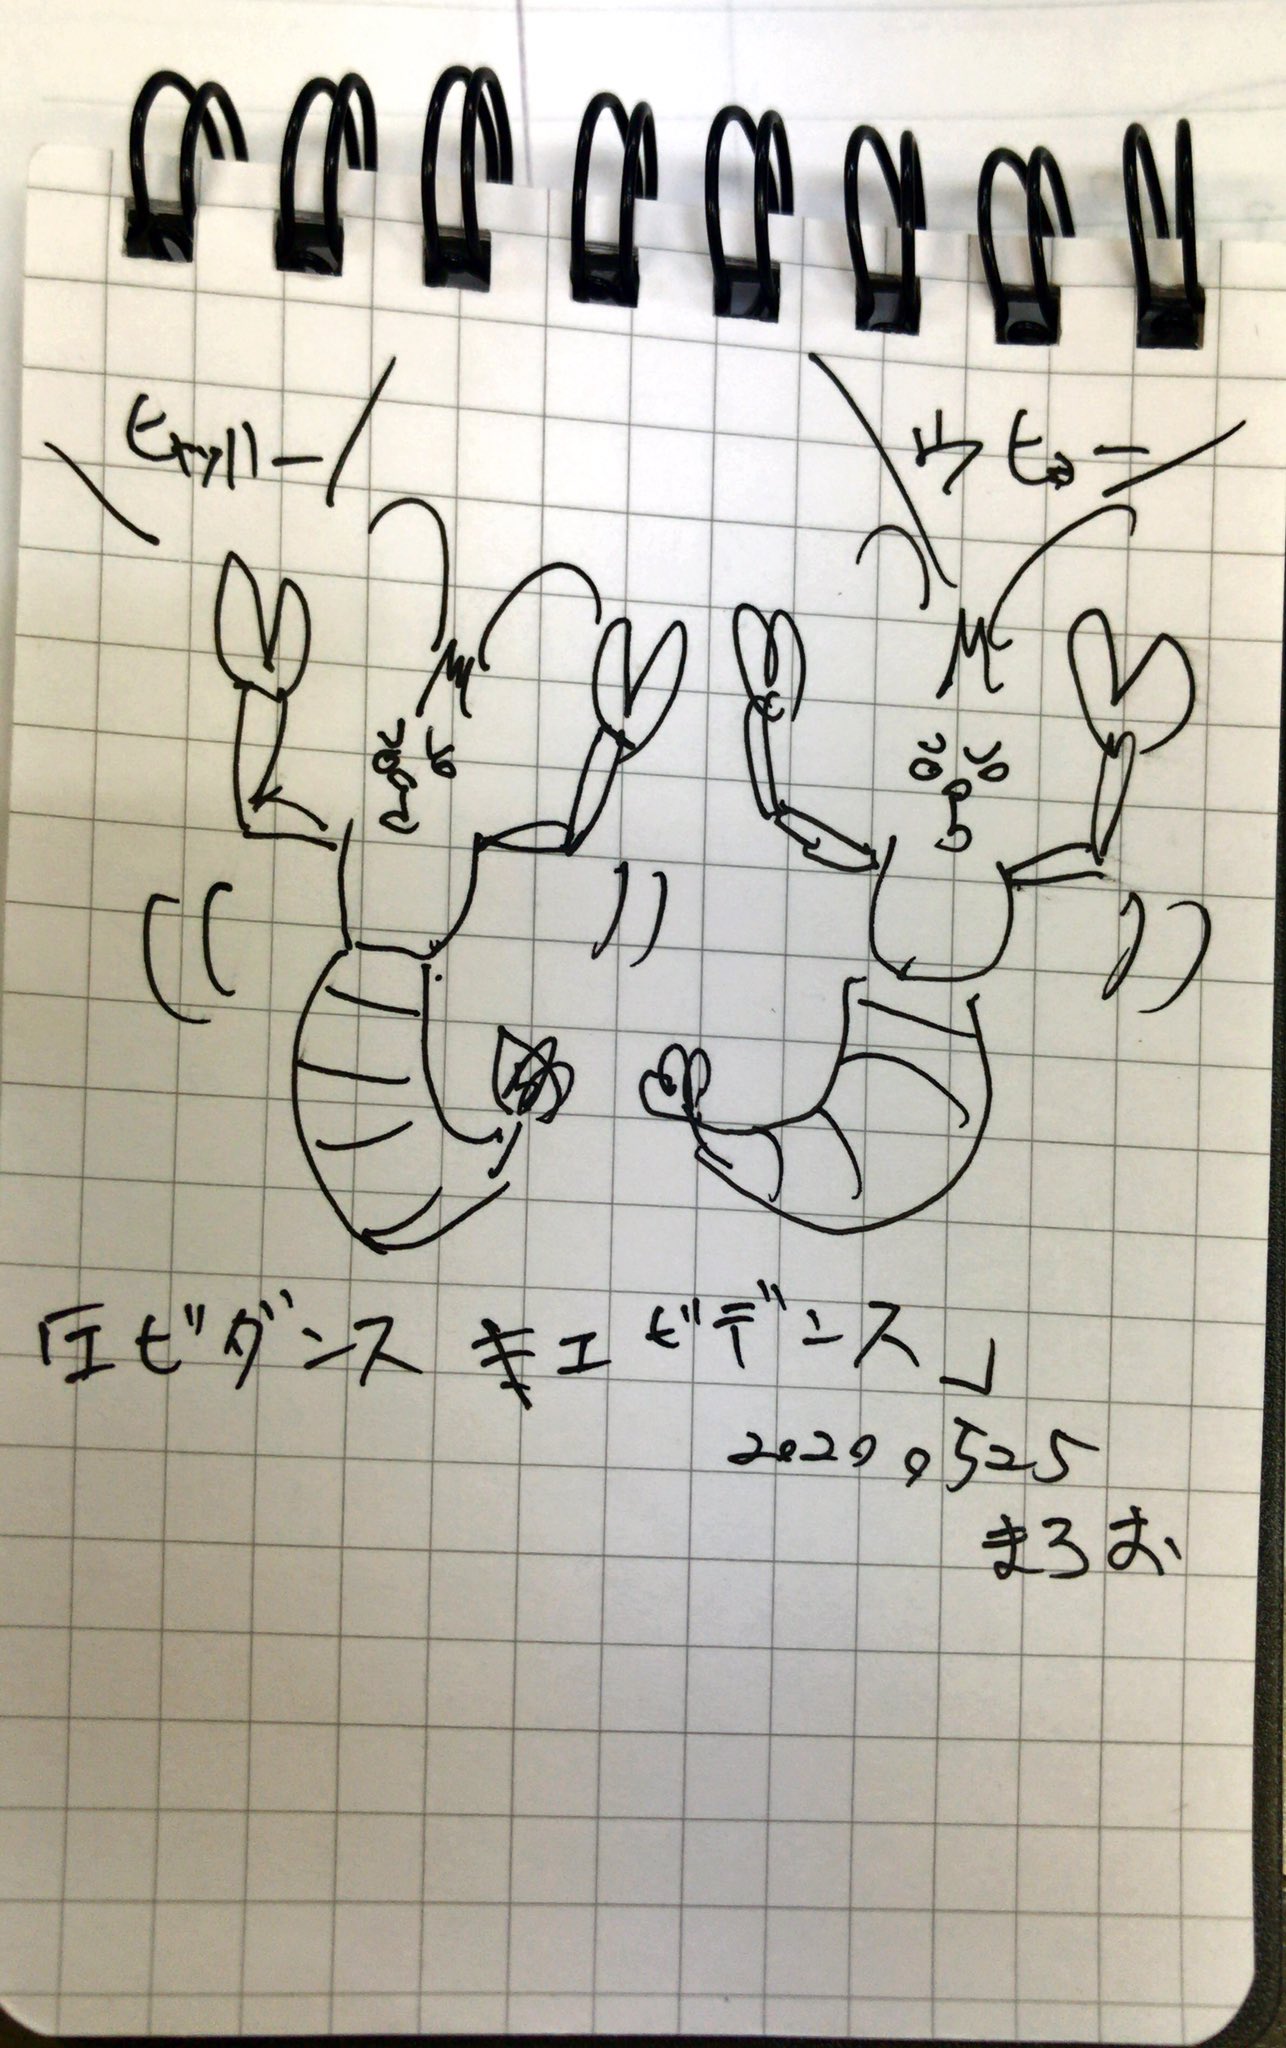 ヒャッハー
ウヒョー
「エビダンス ≠ エビデンス」
2020.525
まろお